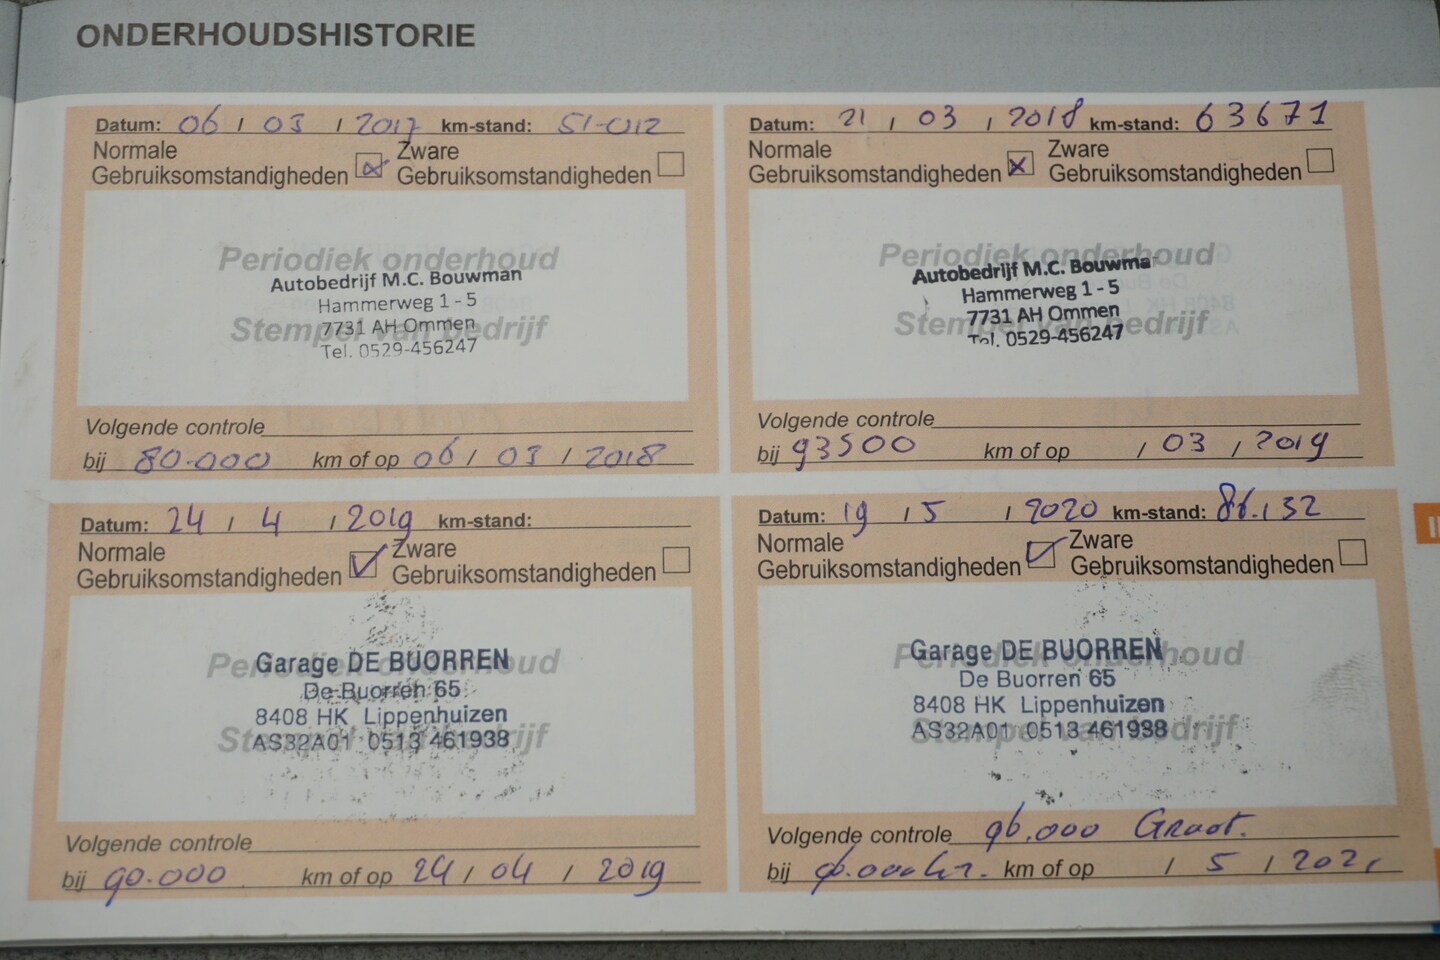 ONDERHOUDSHISTORIE
Datum: 06 / 03 / 2017 km-stand: 51.012
Normale Gebruiksomstandigheden Zware Gebruiksomstandigheden
Periodiek onderhoud
Autobedrijf M.C. Bouwman
Hammerweg 1 - 5
7731 AH Ommen
Stempel van bedrijf
Tel. 0529-456247
Volgende controle
bij 80.000 km of op 06 / 03 / 2018
Datum: 21 / 03 / 2018 km-stand: 63671
Normale Gebruiksomstandigheden Zware Gebruiksomstandigheden
Periodiek onderhoud
Autobedrijf M.C. Bouwma
Hammerweg 1 - 5
7731 AH Ommen
Stempel van bedrijf
Tel. 0529-456247
Volgende controle
bij 93500 km of op / 03 / 2019
Datum: 24 / 4 / 2019 km-stand:
Normale Gebruiksomstandigheden Zware Gebruiksomstandigheden
Periodiek onderhoud
Garage DE BUORREN
De Buorren 65
8408 HK Lippenhuizen
Stempel van bedrijf
AS32A01 0513 461938
Volgende controle
bij 90.000 km of op 24 / 04 / 2019
Datum: 19 / 5 / 2020 km-stand: 86.132
Normale Gebruiksomstandigheden Zware Gebruiksomstandigheden
Periodiek onderhoud
Garage DE BUORREN
De Buorren 65
8408 HK Lippenhuizen
Stempel van bedrijf
AS32A01 0513 461938
Volgende controle 96.000 Groot.
bij 96.000 km of op / 5 / 2021